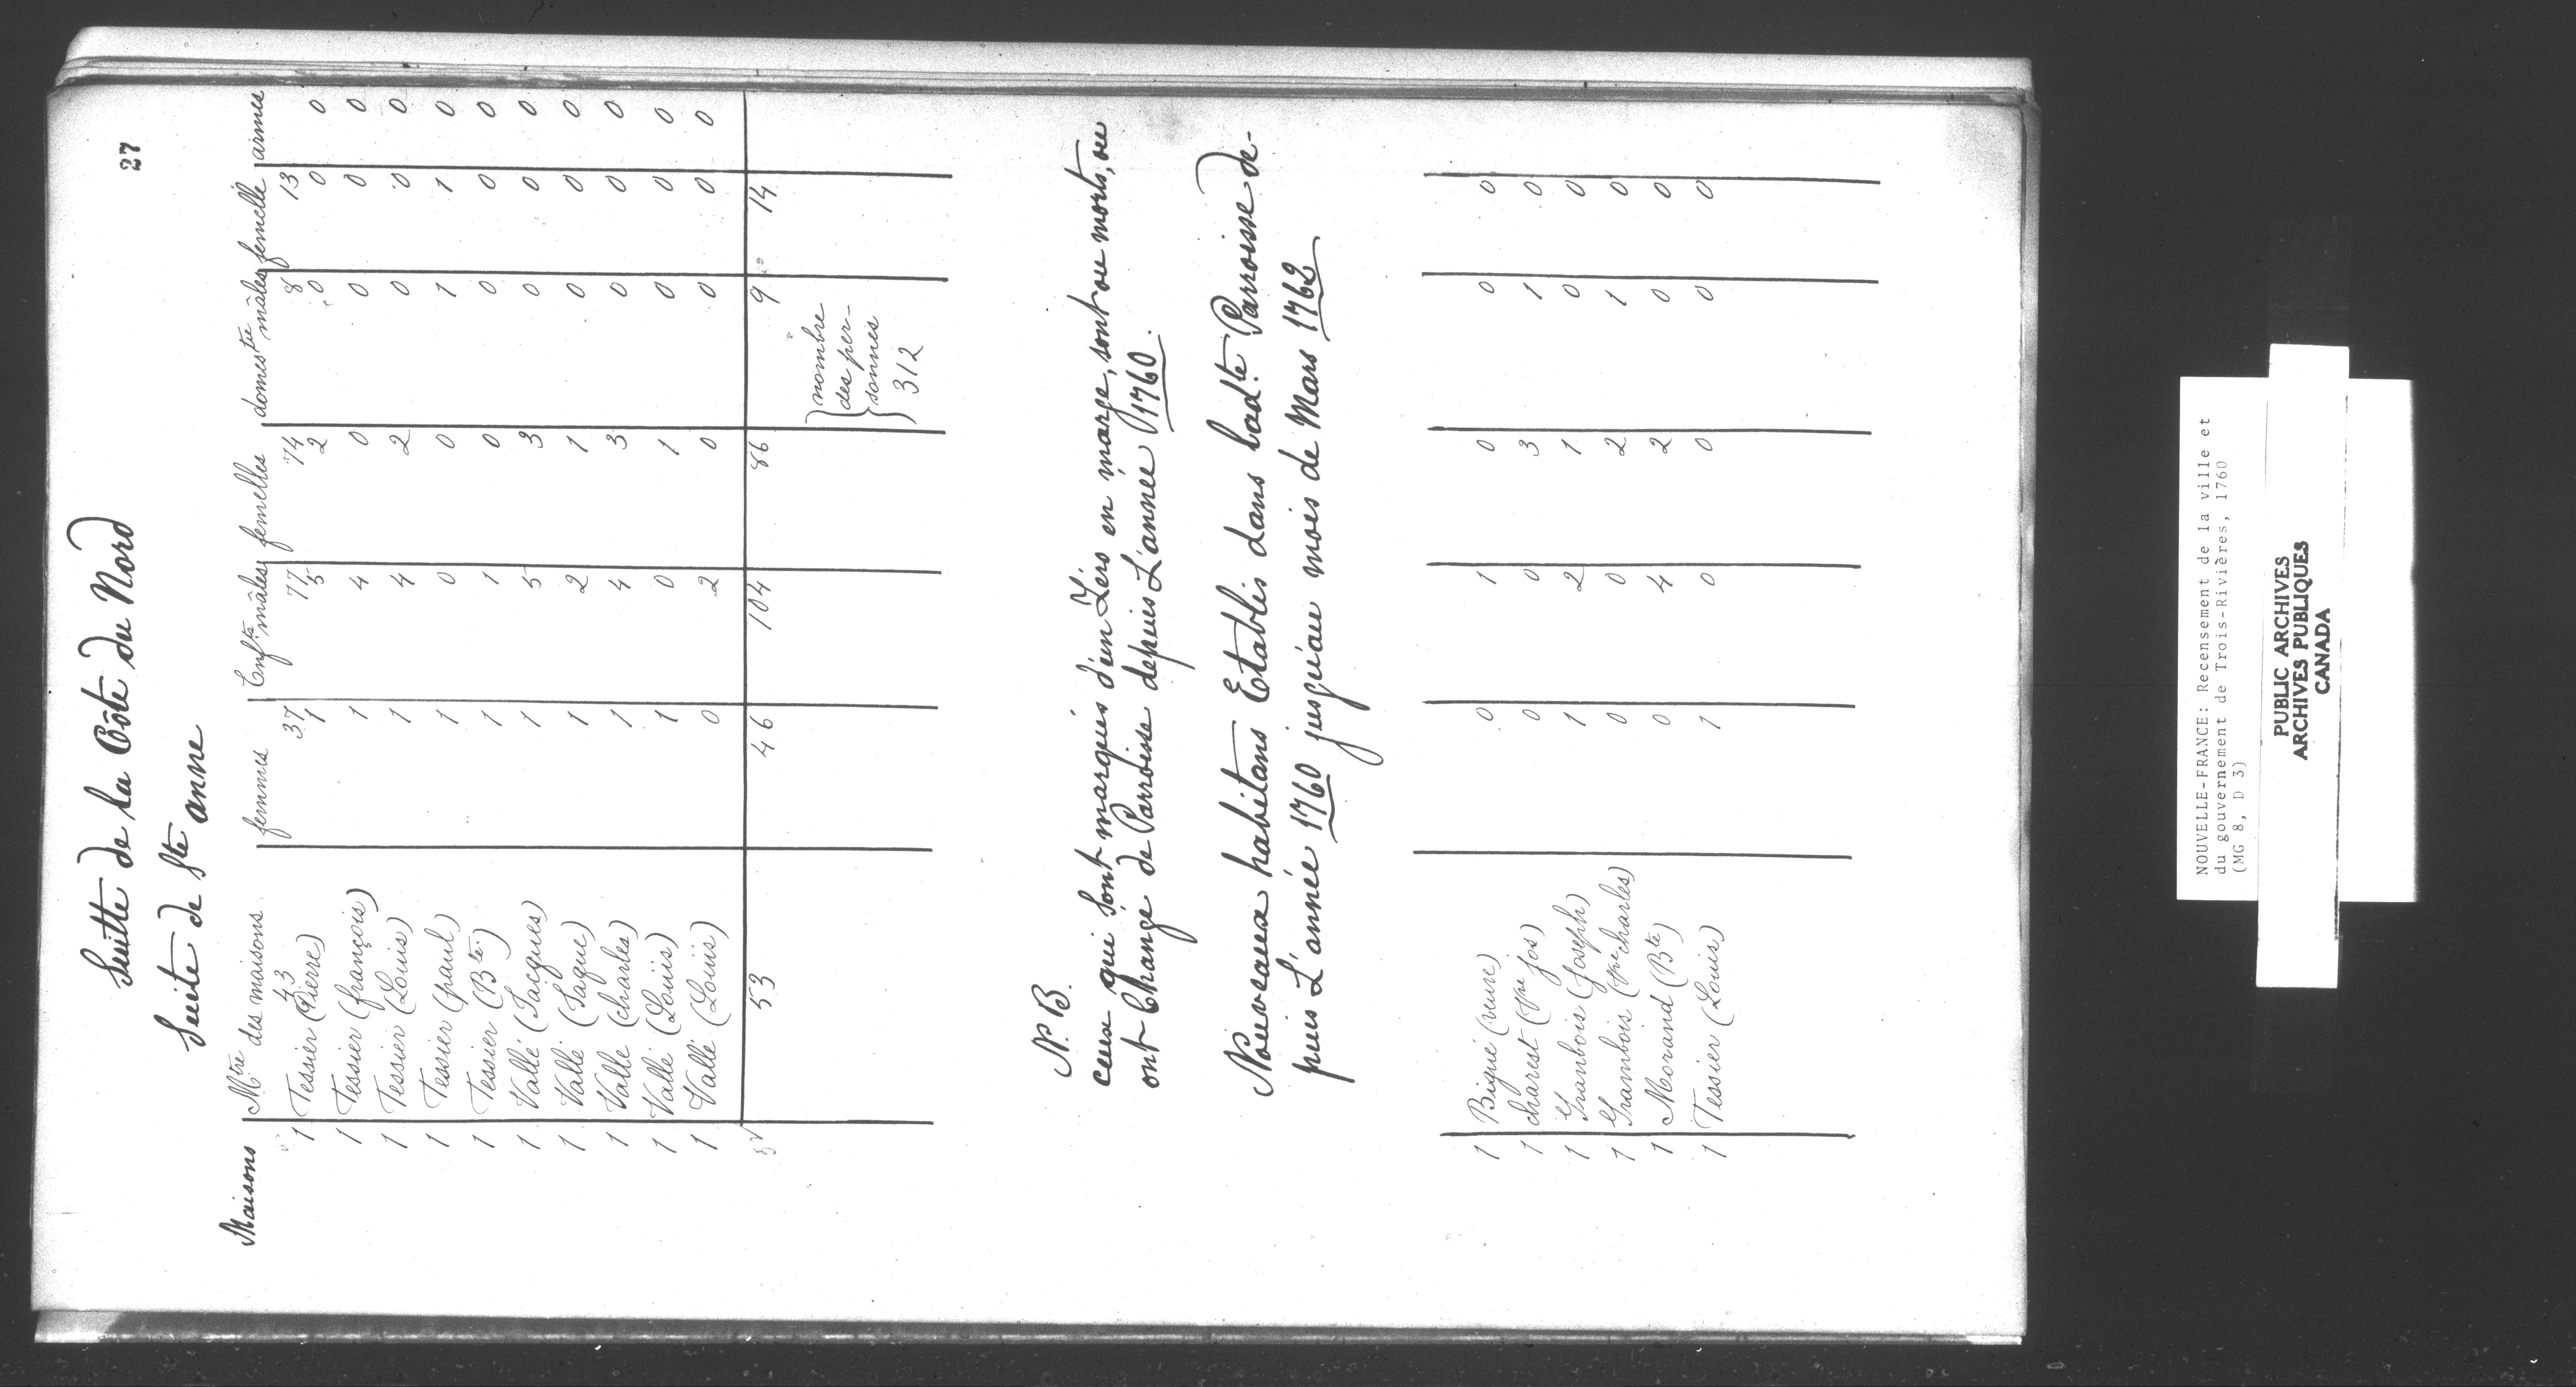 27
Suitte de La Côte du Nord
Suite de Ste anne
Maisons Mtre des maisons femmes Enfts mâles femelles domestes mâles femelle armes
43 37 77 74 8 13
1 Tessier (Pierre) 1 5 2 0 0 0
1 Tessier (françois) 1 4 0 0 0 0
1 Tessier (Louis) 1 4 2 0 0 0
1 Tessier (paul) 1 0 0 1 1 0
1 Tessier (Bte) 1 1 0 0 0 0
1 Vallé (Jacques) 1 5 3 0 0 0
1 Vallé (Jaque) 1 2 1 0 0 0
1 Vallé (charles) 1 4 3 0 0 0
1 Vallé (Louis) 1 0 1 0 0 0
1 Vallé (Louis) 0 2 0 0 0 0
53 46 104 86 9 14
nombre
des per-
sonnes
312
N. B.
ceux qui Sont marqués d'un Zéro en marge, sont ou morts, ou
ont Changé de Parroisse depuis L'année 1760.
Nouveaux habitans Etablis dans ladte Parroisse de-
puis L'année 1760 jusqu'au mois de Mars 1762
1 Bigué (veuve) 0 1 0 0 0
1 charest (pre jos) 0 0 3 1 0
1 Granbois (Joseph) 1 2 1 0 0
1 Granbois (pre charles) 0 0 2 1 0
1 Morand (Bte) 0 4 2 0 0
1 Tessier (Louis) 1 0 0 0 0
NOUVELLE-FRANCE: Recensement de la ville et
du gouvernement de Trois-Rivières, 1760
(MG 8, D 3)
PUBLIC ARCHIVES
ARCHIVES PUBLIQUES
CANADA